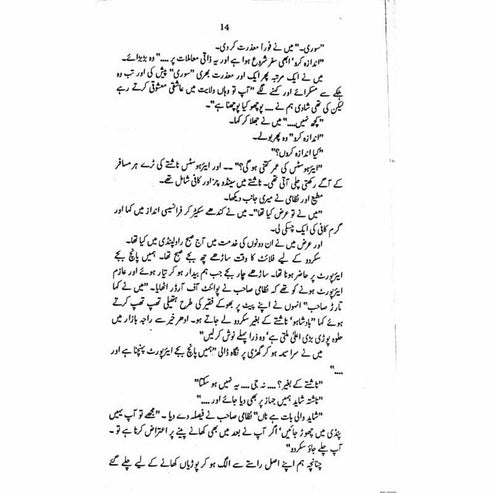 14
"سوری۔" میں نے فوراً معذرت کر دی۔
"اندازہ کرو' ابھی سفر شروع ہوا ہے اور یہ ذاتی معاملات پر ...." وہ بڑبڑائے۔
میں نے ایک مرتبہ پھر ایک اور معذرت بھری "سوری" پیش کی اور تب وہ
ہلکے سے مسکرائے اور کہنے لگے "آپ تو وہاں ولایت میں عاشقی معشوقی کرتے رہے
لیکن کی تھی شادی ہم نے .... پوچھو کیا پوچھنا ہے"۔
"کچھ نہیں...." میں نے جھلا کر کہا۔
"اندازہ کرو" وہ پھر بولے۔
"کیا اندازہ کروں؟"
"ایئرہوسٹس کی عمر کتنی ہو گی؟" -- اور ایئرہوسٹس ناشتے کی ٹرے ہر مسافر
کے آگے رکھتی چلی آتی تھی۔ ناشتے میں سینڈوچز اور کافی شامل تھے۔
مطیع اور نظامی نے میری جانب دیکھا۔
"میں نے تو عرض کیا تھا"۔ میں نے کندھے سکیڑ کر فرانسیسی انداز میں کہا اور
گرم کافی کی ایک چسکی لی۔
اور عرض میں نے ان دونوں کی خدمت میں آج صبح راولپنڈی میں کیا تھا۔
سکردو کے لیے فلائٹ کا وقت ساڑھے چھ بجے صبح تھا۔ ہمیں پانچ بجے
ایئرپورٹ پر حاضر ہونا تھا۔ ساڑھے چار بجے جب ہم بیدار ہو کر تیار ہوئے اور عازم
ایئرپورٹ ہونے کو تھے کہ نظامی صاحب نے پوائنٹ آف آرڈر اٹھایا۔ "میں نے کہا
تارڑ صاحب" انہوں نے اپنے پیٹ پر بھوکے فقیر کی طرح ہتھیلی تھپ تھپ کرتے
ہوئے کہا "بادشاہو' ناشتے کے بغیر سکردو لے جاتے ہو۔ ادھر خیر سے راجہ بازار میں
حلوہ پوڑی بڑی اعلیٰ ملتی ہے' وہ ذرا پہلے نوش کر لیں"
میں نے سراسیمہ ہو کر گھڑی پر نگاہ ڈالی "ہمیں پانچ بجے ایئرپورٹ پہنچنا ہے اور
...."
"ناشتے کے بغیر؟ .... نہ جی .... یہ نہیں ہو سکتا"
"ناشتہ شاید ہمیں جہاز پر بھی دیا جائے اور ...."
"شاید والی بات ہے ناں" نظامی صاحب نے فیصلہ دے دیا ۔ "مجھے تو آپ یہیں
پنڈی میں چھوڑ جائیں' اگر آپ نے بعد میں بھی کھانے پینے پر اعتراض کرنا ہے تو ۔
آپ چلے جاؤ سکردو"
چنانچہ ہم اپنے اصل راستے سے الگ ہو کر پوڑیاں کھانے کے لیے چلے گئے